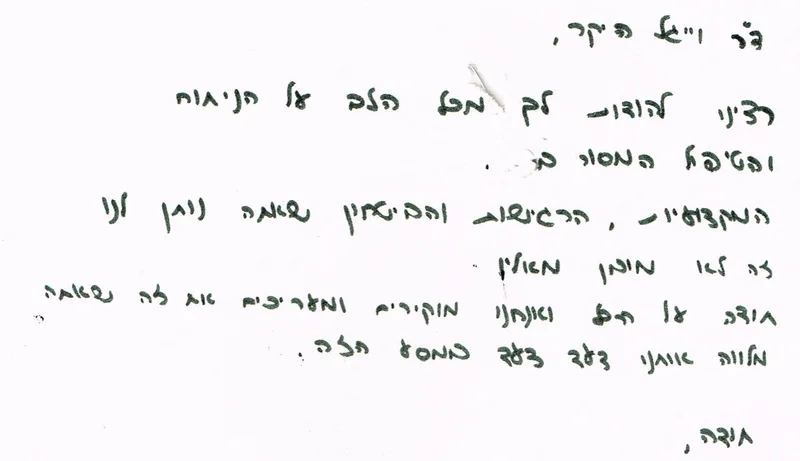 ד"ר וייגל היקר,
רצינו להודות לך מכל הלב על הניתוח
והטיפול המסור ב .
המקצועיות, הרגישות והביטחון שאתה נותן לנו
זה לא מובן מאליו
תודה על הכל ואנחנו מוקירים ומעריכים את זה שאתה
מלווה אותנו צעד צעד במסע הזה.
תודה,